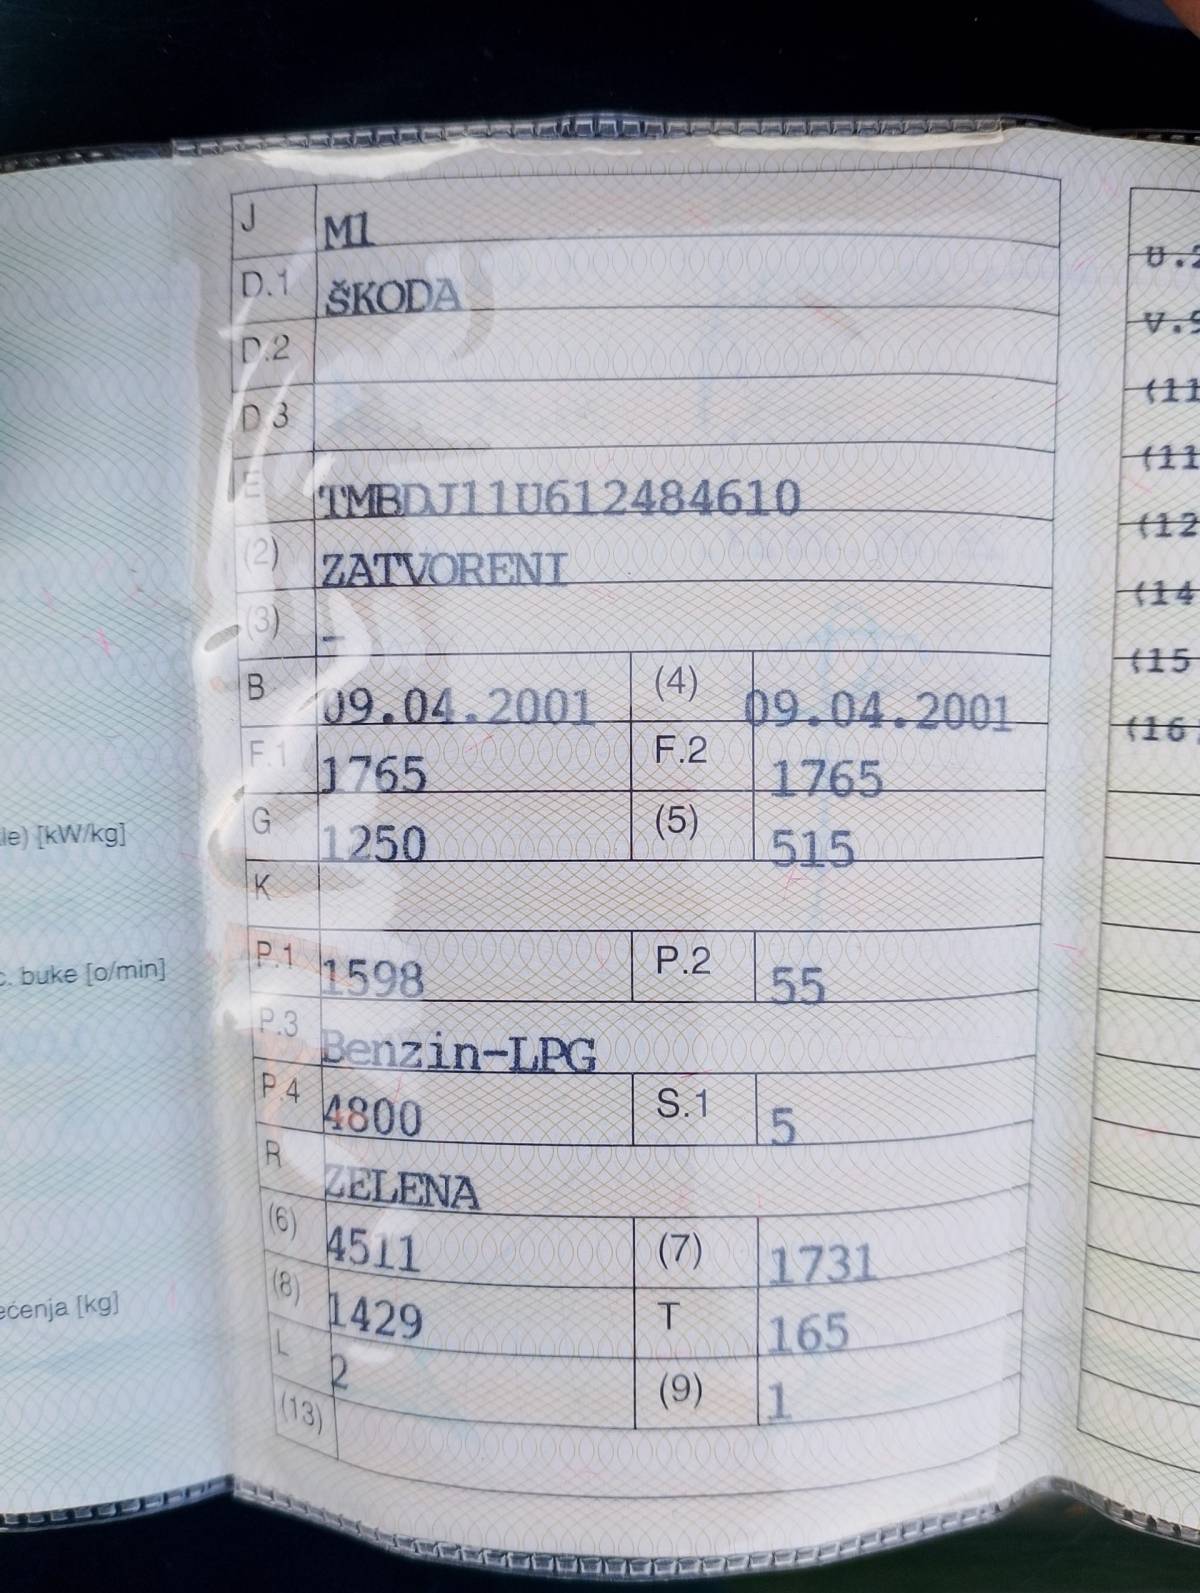 J M1
D.1 ŠKODA
D.2
D.3
E TMBDJ11U612484610
(2) ZATVORENI
(3) –
B 09.04.2001 (4) 09.04.2001
F.1 1765 F.2 1765
G 1250 (5) 515
K
P.1 1598 P.2 55
P.3 Benzin-LPG
P.4 4800 S.1 5
R ZELENA
(6) 4511 (7) 1731
(8) 1429 T 165
L 2 (9) 1
(13)
le) [kW/kg]
c. buke [o/min]
ećenja [kg]
U.2
V.9
(11
(11
(12
(14
(15
(16